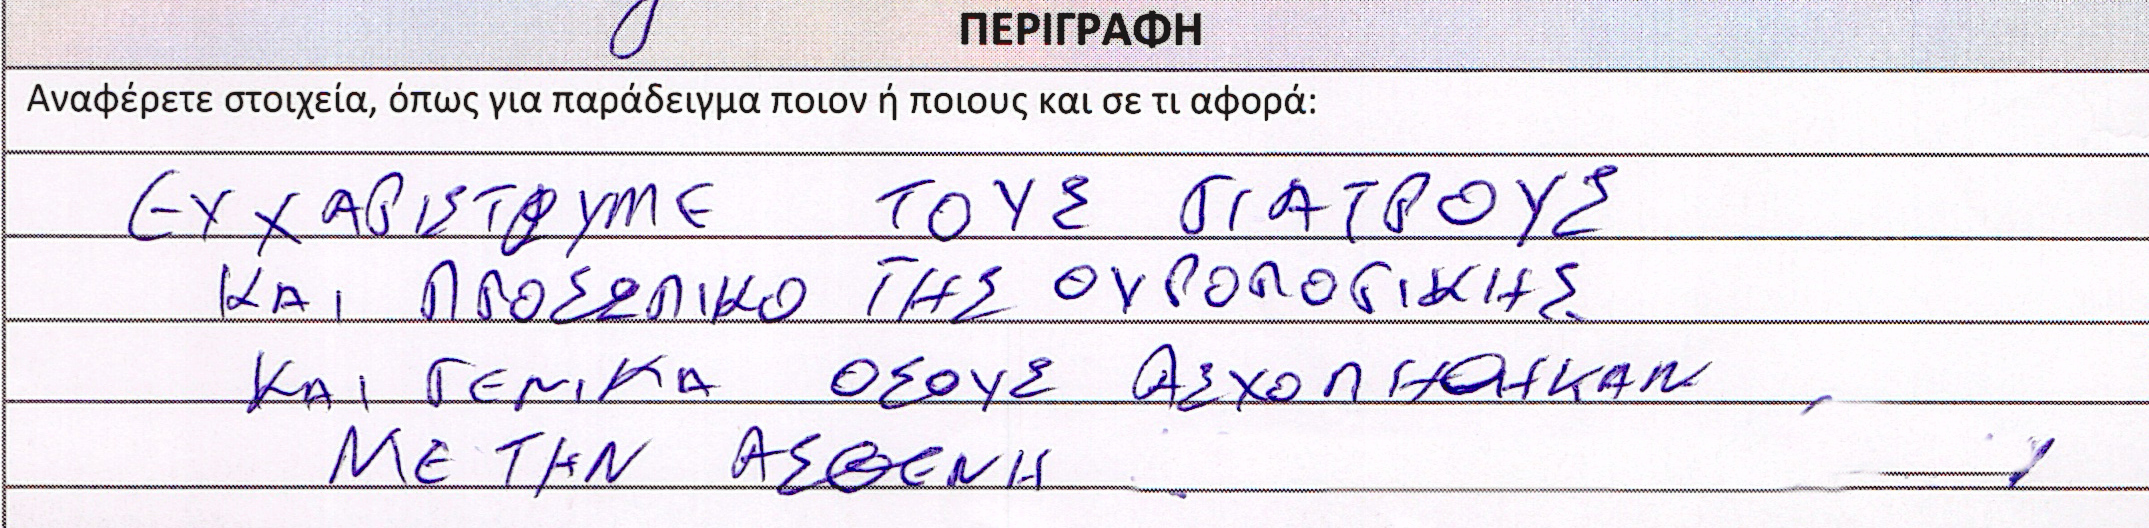 ΠΕΡΙΓΡΑΦΗ
Αναφέρετε στοιχεία, όπως για παράδειγμα ποιον ή ποιους και σε τι αφορά:
ΕΥΧΑΡΙΣΤΟΥΜΕ ΤΟΥΣ ΓΙΑΤΡΟΥΣ
ΚΑΙ ΠΡΟΣΩΠΙΚΟ ΤΗΣ ΟΥΡΟΛΟΓΙΚΗΣ
ΚΑΙ ΓΕΝΙΚΑ ΟΣΟΥΣ ΑΣΧΟΛΗΘΗΚΑΝ
ΜΕ ΤΗΝ ΑΣΘΕΝΗ